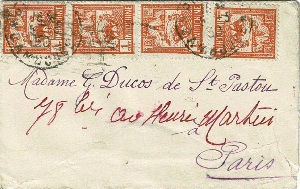 Madame G. Ducos de St Pastou
78 bis av Henri Martin
à
Paris